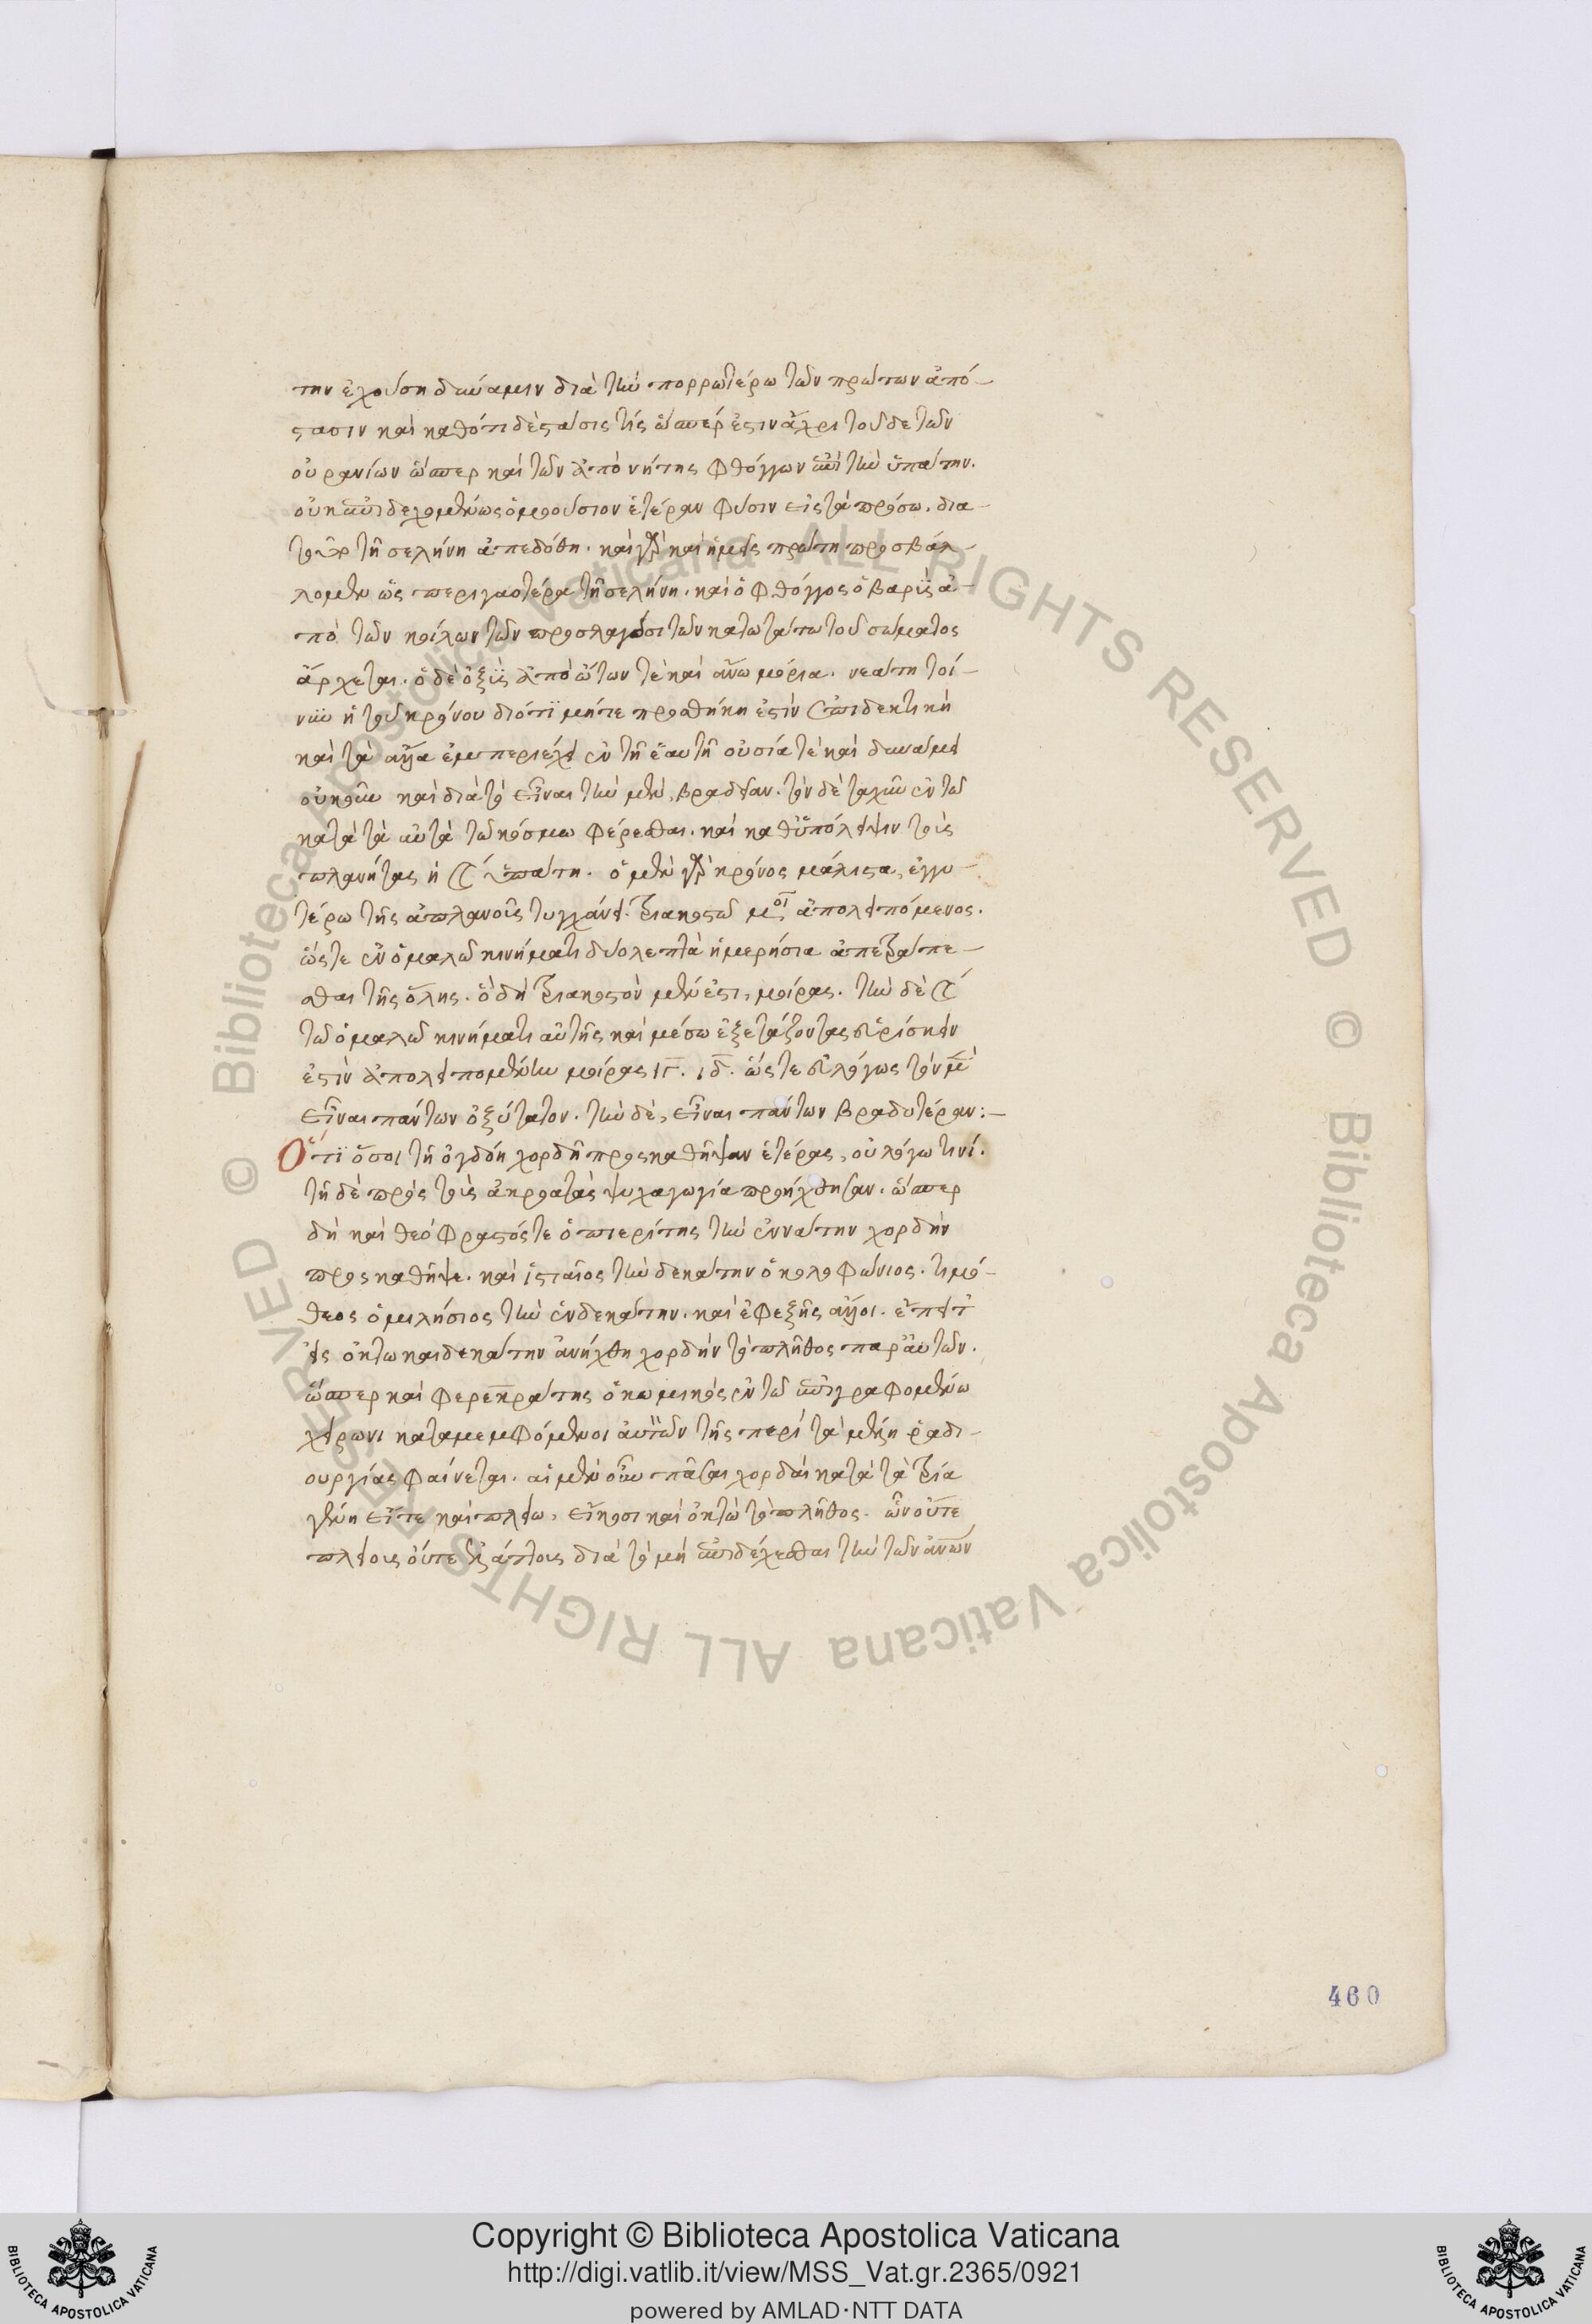 την ἔχουση δύναμιν διὰ τὴν πορρωτέρω τῶν πρώτων ἀπό-
στασιν καὶ καθότι δὲ στάσις τίς ὥσπέρ ἐστιν ἄχρι τοῦδε τῶν
οὐρανίων ὥσπερ καὶ τῶν ἀπὸ νήτης φθόγγων ἐπὶ τὴν ὑπάτην.
οὐκ ἐπιδεχομένως ὁμοούσιον ἑτέραν φύσιν εἰς τὰ πρόσω. δια-
τοῦτο τῆ σελήνη ἀπεδόθη. καὶ γὰρ καὶ ἡμεῖς πρώτη προσβάλ-
λομεν ὡς περιγειοτέρα τῆ σελήνη. καὶ ὁ φθόγγος ὁ βαρὺς ἀ-
πὸ τῶν κοίλων τῶν κατωτάτω τοῦ σώματος
ἄρχεται. ὁ δὲ ὀξὺς ἀπὸ ὤτων τὲ καὶ ἄνω μόρια. νεάτη τοί-
νυν ἡ τοῦ κρόνου διότι μήτε προσθήκη ἐστὶν ἐπιδεκτικὴ
καὶ τὰ ἄλλα ἐμπεριέχει ἐν τῆ ἑαυτῆ οὐσία τὲ καὶ δυνάμει
οὐκοῦν καὶ διὰ τὸ εἶναι τὴν μὲν, βραδεῖαν. τὸν δὲ ταχὺν ἐν τῶ
κατὰ τὰ αὐτὰ τῶ κόσμω φέρεσθαι. καὶ καθ' ὑπόλειψιν τοὺς
πλανήτας ἡ ☾ ὑπάτη. ὁ μὲν γὰρ κρόνος μάλιστα, ἐγγυ-
τέρω τῆς ἀπλανοῦς τυγχάνει. τριακοστῶ μοι ἀπολειπόμενος.
ὥστε ἐν ὁμαλῶ κινήματι δύο λεπτὰ ἡμερήσια ἀπέ
σθαι τῆς ὅλης. ὃ δὴ τριακοστὸν μέν ἐστι, μοίρας. τὴν δὲ ☾
τῶ ὁμαλῶ κινήματι αὐτῆς καὶ μέσω ἐξετάζοντας εὑρίσκειν
ἐστὶν ἀπολειπομένην μοίρας ιγ. ιδ. ὥστε εὐλόγως τὸν μὲν
εἶναι πάντων ὀξύτατον. τὴν δὲ, εἶναι πάντων βραδυτέραν:-
Ὅτι ὅσοι τῆ ὀγδόη χορδῆ προσκαθῆψαν ἑτέρας, οὐ λόγω τινί.
τῆ δὲ πρὸς τοὺς ἀκροατὰς ψυχαγωγία προήχθησαν. ὥσπερ
δὴ καὶ θεόφραστός τε ὁ πιερίτης τὴν ἐννάτην χορδὴν
προσκαθῆψε. καὶ ἱστιαῖος τὴν δεκάτην ὁ κολοφώνιος. τιμό-
θεος ὁ μιλήσιος τὴν ἑνδεκάτην. καὶ ἐφεξῆς ἄλλοι. ἔπειτ'
εἰς ὀκτωκαιδεκάτην ἀνήχθη χορδὴν τὸ πλῆθος παρ' αὐτῶν.
ὥσπερ καὶ φερεκράτης ὁ κωμικὸς ἐν τῶ ἐπιγραφομένω
χείρωνι καταμεμφόμενοι αὐτῶν τῆς περὶ τὰ μέλη ῥαδι-
ουργίας φαίνεται. αἱ μὲν οὖν πᾶσαι χορδαὶ κατὰ τὰ τρία
γένη εἴτε καὶ πλείω, εἴκοσι καὶ ὀκτὼ τὸ πλῆθος. ὧν οὔτε
πλείους οὔτε ἐλάττους διὰ τὸ μὴ ἐπιδέχεσθαι τὴν τῶν ἀνων
460
Copyright © Biblioteca Apostolica Vaticana
http://digi.vatlib.it/view/MSS_Vat.gr.2365/0921
powered by AMLAD·NTT DATA
BIBLIOTECA APOSTOLICA VATICANA
BIBLIOTECA APOSTOLICA VATICANA
© Biblioteca Apostolica Vaticana ALL RIGHTS RESERVED
© Biblioteca Apostolica Vaticana ALL RIGHTS RESERVED